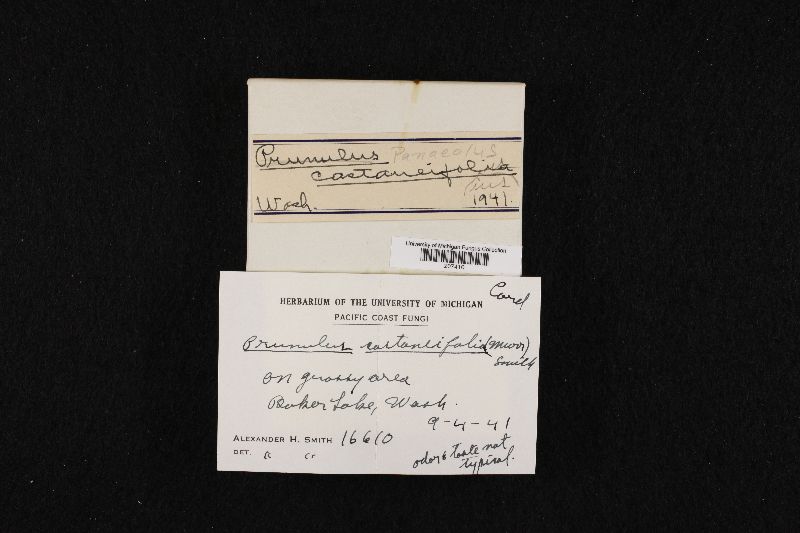 Prunulus Panaeolus
castaneifolius
Wash. 1941.
University of Michigan Fungus Collection
Card
HERBARIUM OF THE UNIVERSITY OF MICHIGAN
PACIFIC COAST FUNGI
Prunulus castaneifolia (Murr)
Smith
on grassy area
Baker Lake, Wash.
9-4-41
ALEXANDER H. SMITH 16610
DET.
odor & taste not
typical.